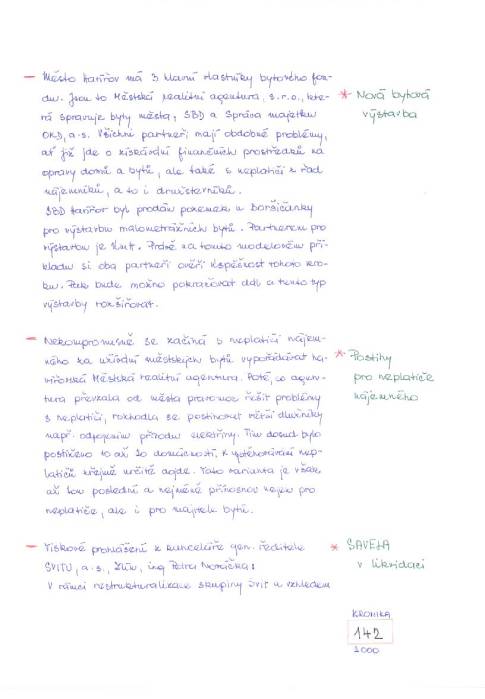 – Město Havířov má 3 hlavní vlastníky bytového fon-
du. Jsou to Městská realitní agentura, s.r.o., kte-
rá spravuje byty města, SBD a Správa majetku
OKD, a.s. Všichni partneři mají obdobné problémy,
ať již jde o získávání finančních prostředků na
opravy domů a bytů, ale také s neplatiči z řad
nájemníků, a to i družstevníků.
SBD Havířov byl prodán pozemek u Boršičánky
pro výstavbu malometrážních bytů. Partnerem pro
výstavbu je Právě na tomto modelovém pří-
kladu si oba partneři ověří úspěšnost tohoto kro-
ku. Pak bude možno pokračovat dál a tento typ
výstavby rozšiřovat.
* Nová bytová
výstavba
– Nekompromisně se začíná s neplatiči nájem-
ného za užívání městských bytů vypořádávat ha-
vířovská Městská realitní agentura. Poté, co agen-
tura převzala od města pravomoc řešit problémy
s neplatiči, rozhodla se postihovat větší dlužníky
např. odpojením přívodu elektřiny. Tím dosud bylo
postiženo 10 až domácností, k vystěhovávání nep-
latičů zřejmě určitě dojde. Tato varianta je však
až tou poslední a nejméně přínosnou nejen pro
neplatiče, ale i pro majitele bytů.
* Postihy
pro neplatiče
nájemného
– Tiskové prohlášení z kanceláře gen. ředitele
SVITU, a.s., Zlín, ing Petra
V rámci restrukturalizace skupiny Svit a vzhledem
* SAVELA
v likvidaci
KRONIKA
142
2000